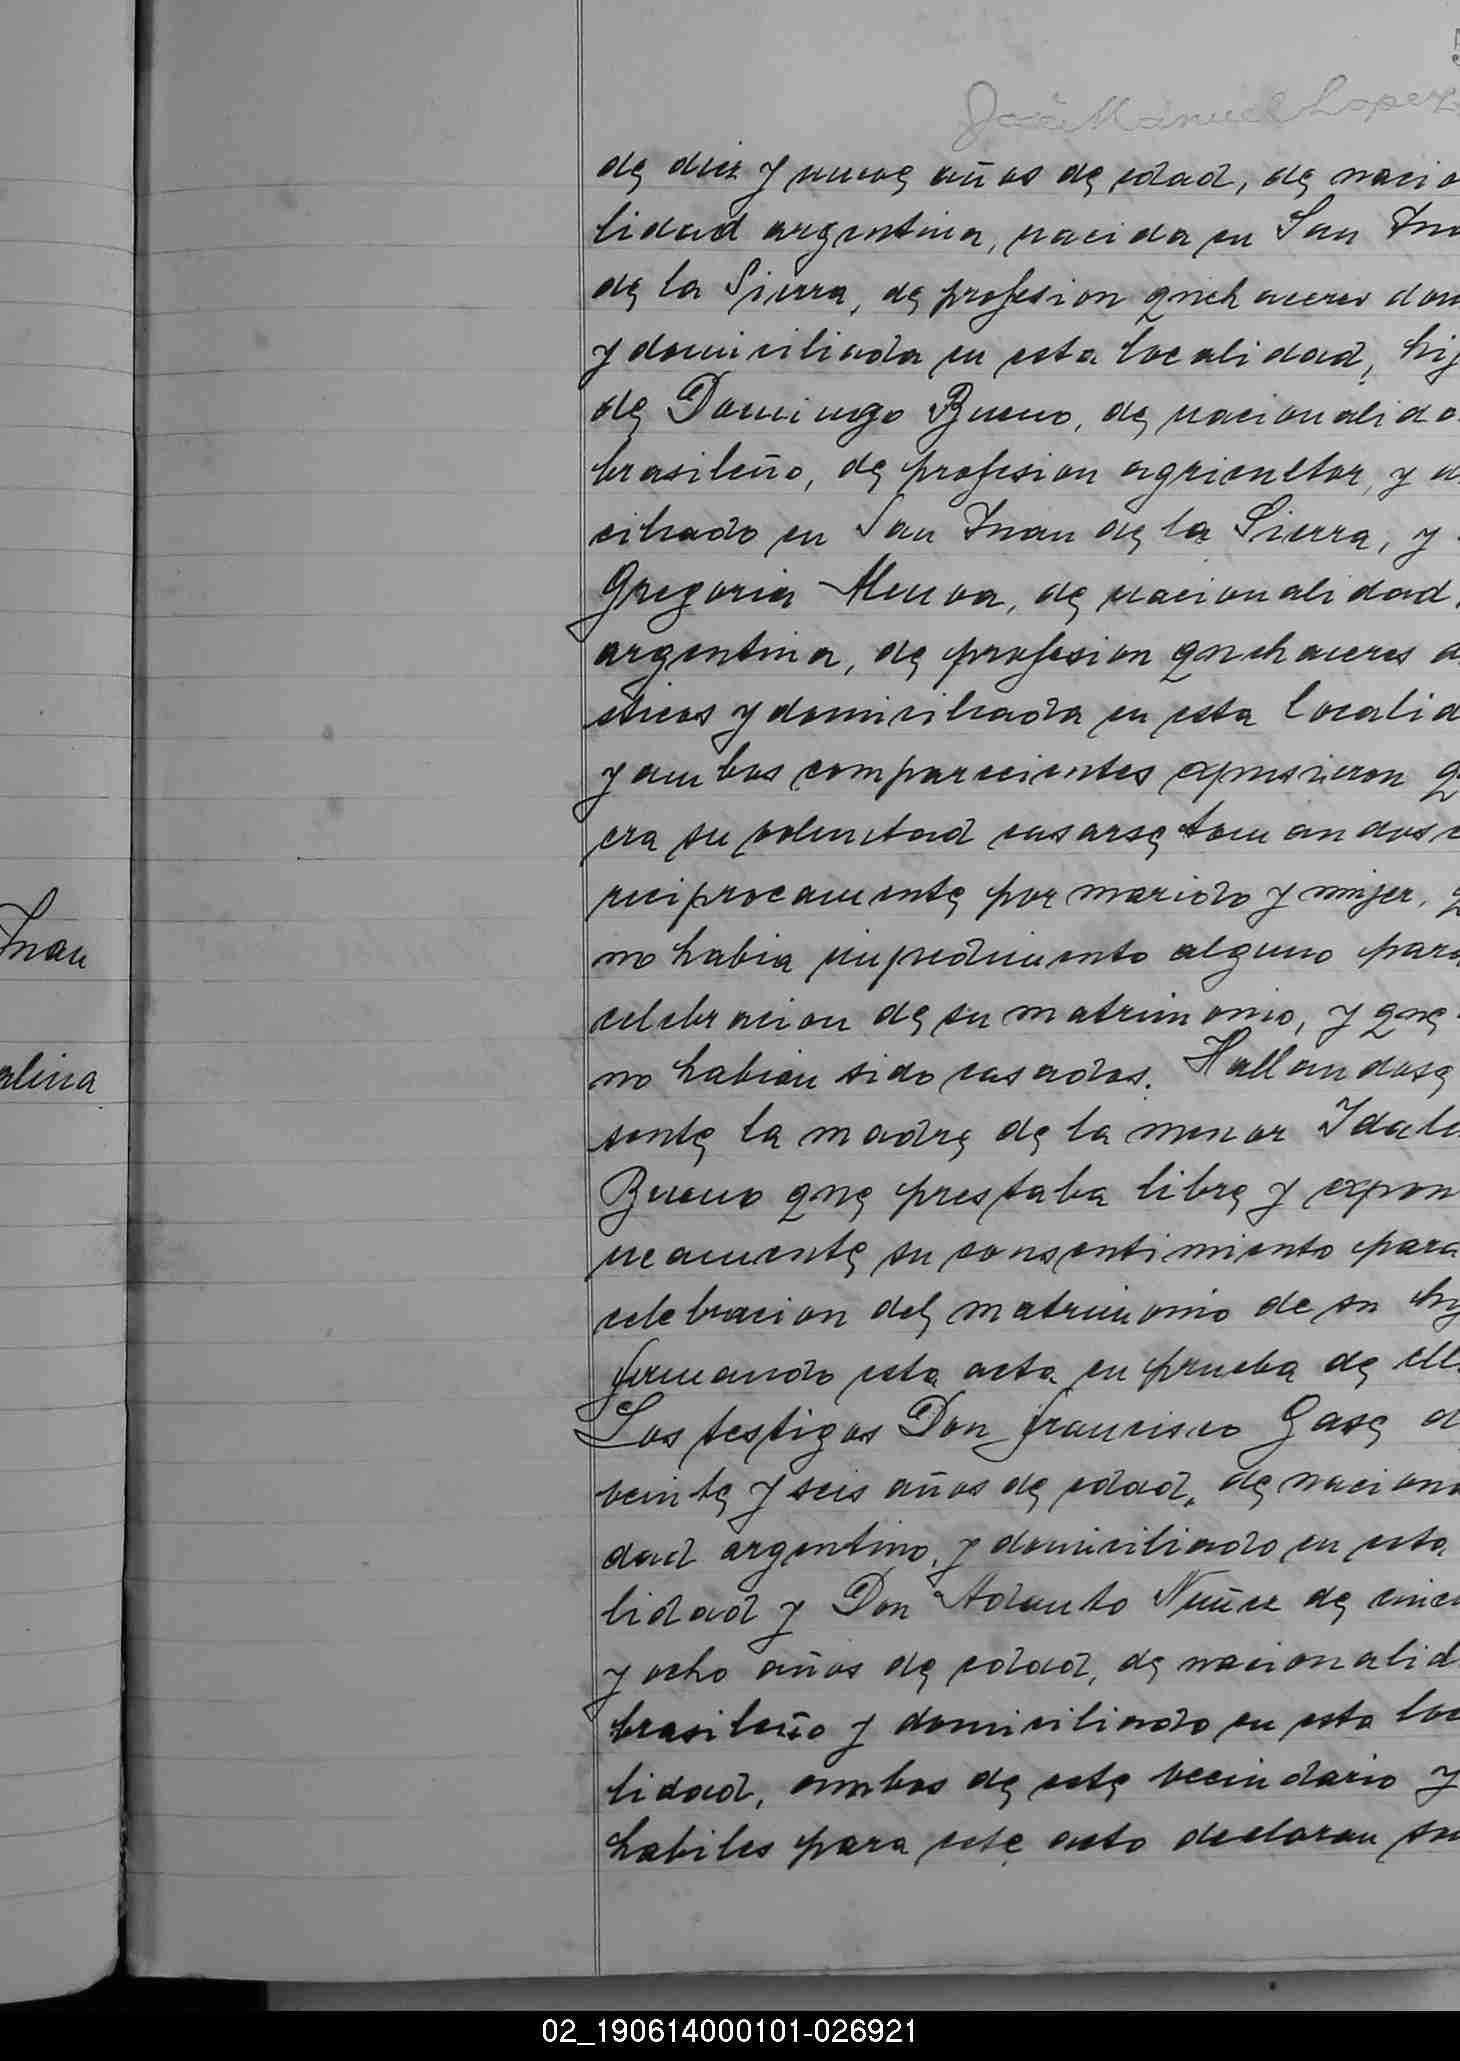 José Manuel Lopez
de diez y nueve años de edad, de nacio
lidad argentina, nacida en San Jua
de la Sierra, de profesion quehaceres dom
y domiciliada en esta localidad, hij
de Domingo Bueno, de nacionalida
brasileño, de profesion agricultor, y d
ciliado en San Juan de la Sierra, y
Gregoria Menoa, de nacionalidad
argentina, de profesion quehaceres d
sticos y domiciliada en esta localid
y ambos comparecientes expusieron q
era su voluntad casarse tomandose
Juan
reciprocamente por marido y mujer, q
no habia impedimento alguno para
celebracion de su matrimonio, y que
alina
no habian sido casados. Hallandose
sente la madre de la menor Idali
Bueno que prestaba libre y expon
neamente su consentimiento para
celebracion del matrimonio de su hij
firmando esta acta en prueba de ell
Los testigos Don Francisco Gase d
veinte y seis años de edad, de naciona
dad argentino, y domiciliado en esta
lidad y Don Adauto Nuñez de cincu
y ocho años de edad, de nacionalid
brasileño y domiciliado en esta loc
lidad, ambos de este vecindario y
habiles para este acto declaran su
02_190614000101-026921